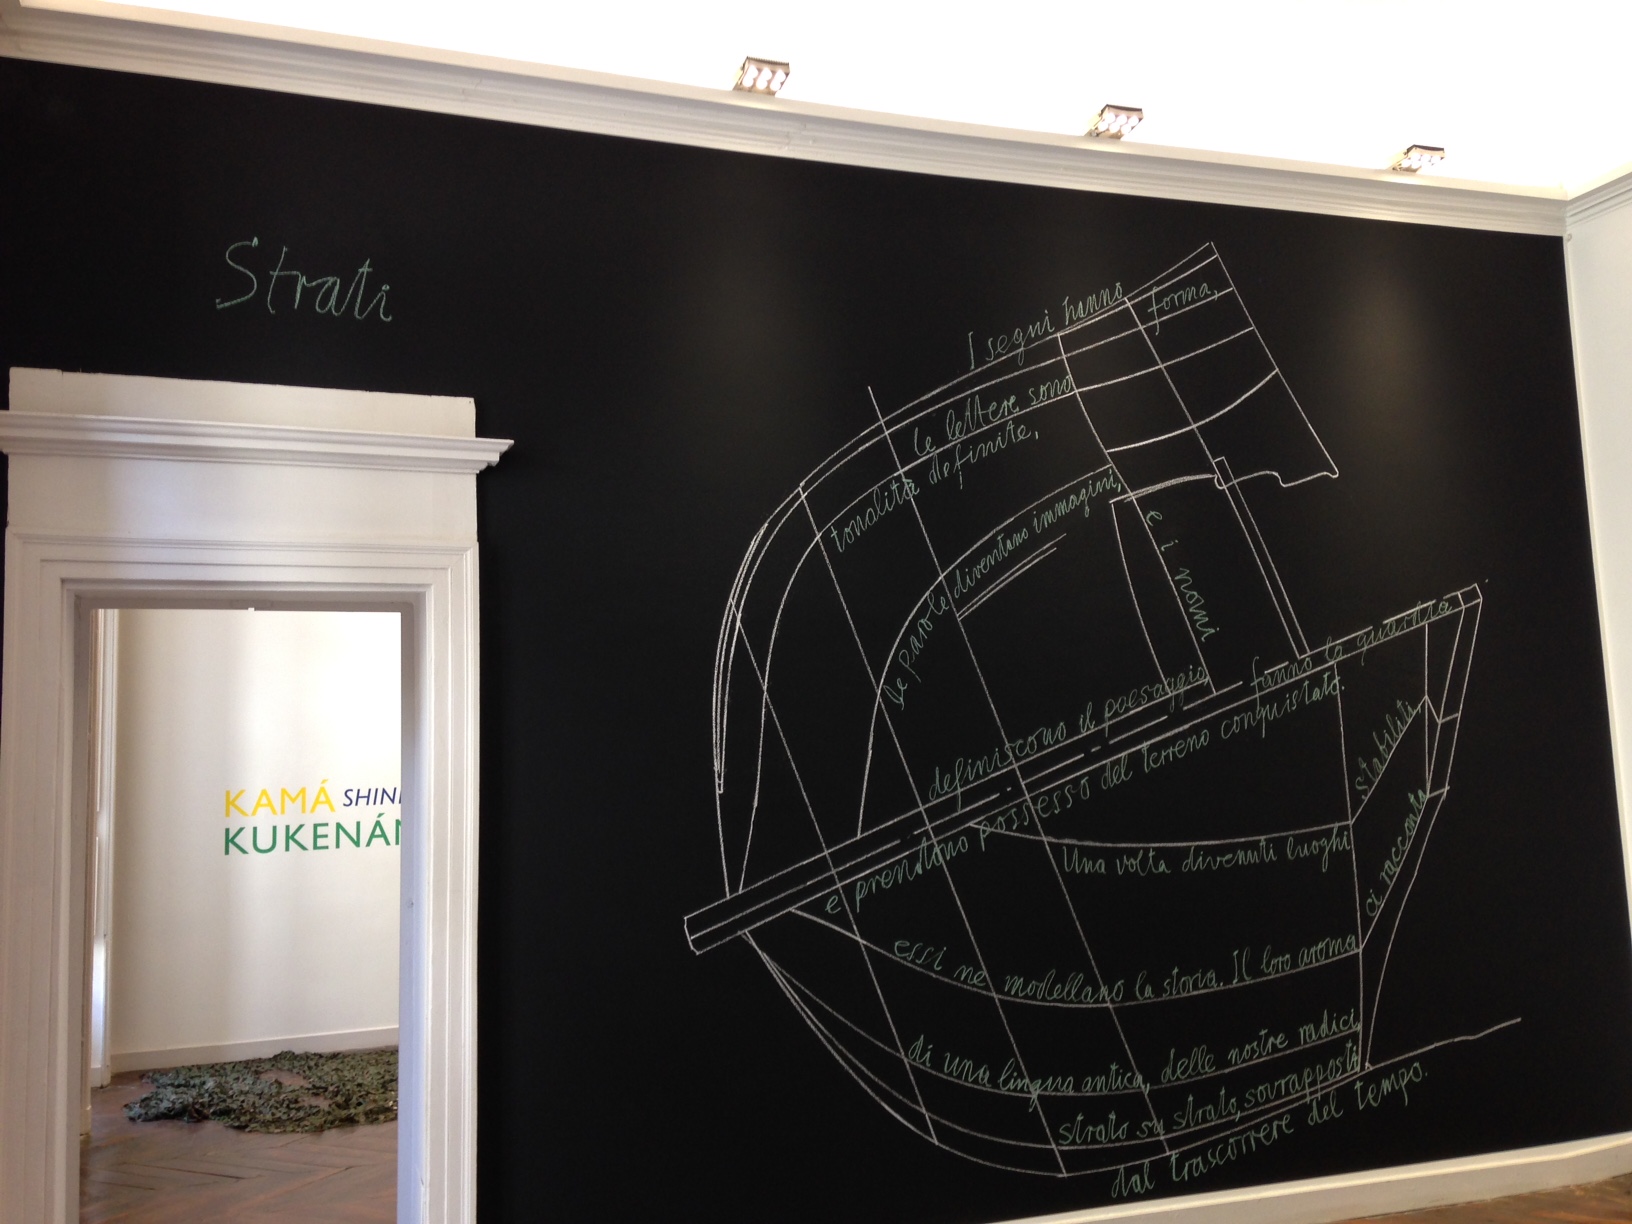 Strati
I segni hanno forma,
le lettere sono
tonalità definite,
le parole diventano immagini,
e i nomi
definiscono il paesaggio, fanno la guardia
e prendono possesso del terreno conquistato.
Una volta divenuti luoghi stabiliti,
essi ne modellano la storia. Il loro aroma ci racconta
di una lingua antica, delle nostre radici,
strato su strato, sovrapposti
dal trascorrere del tempo.
KAMÁ SHIN
KUKENÁN